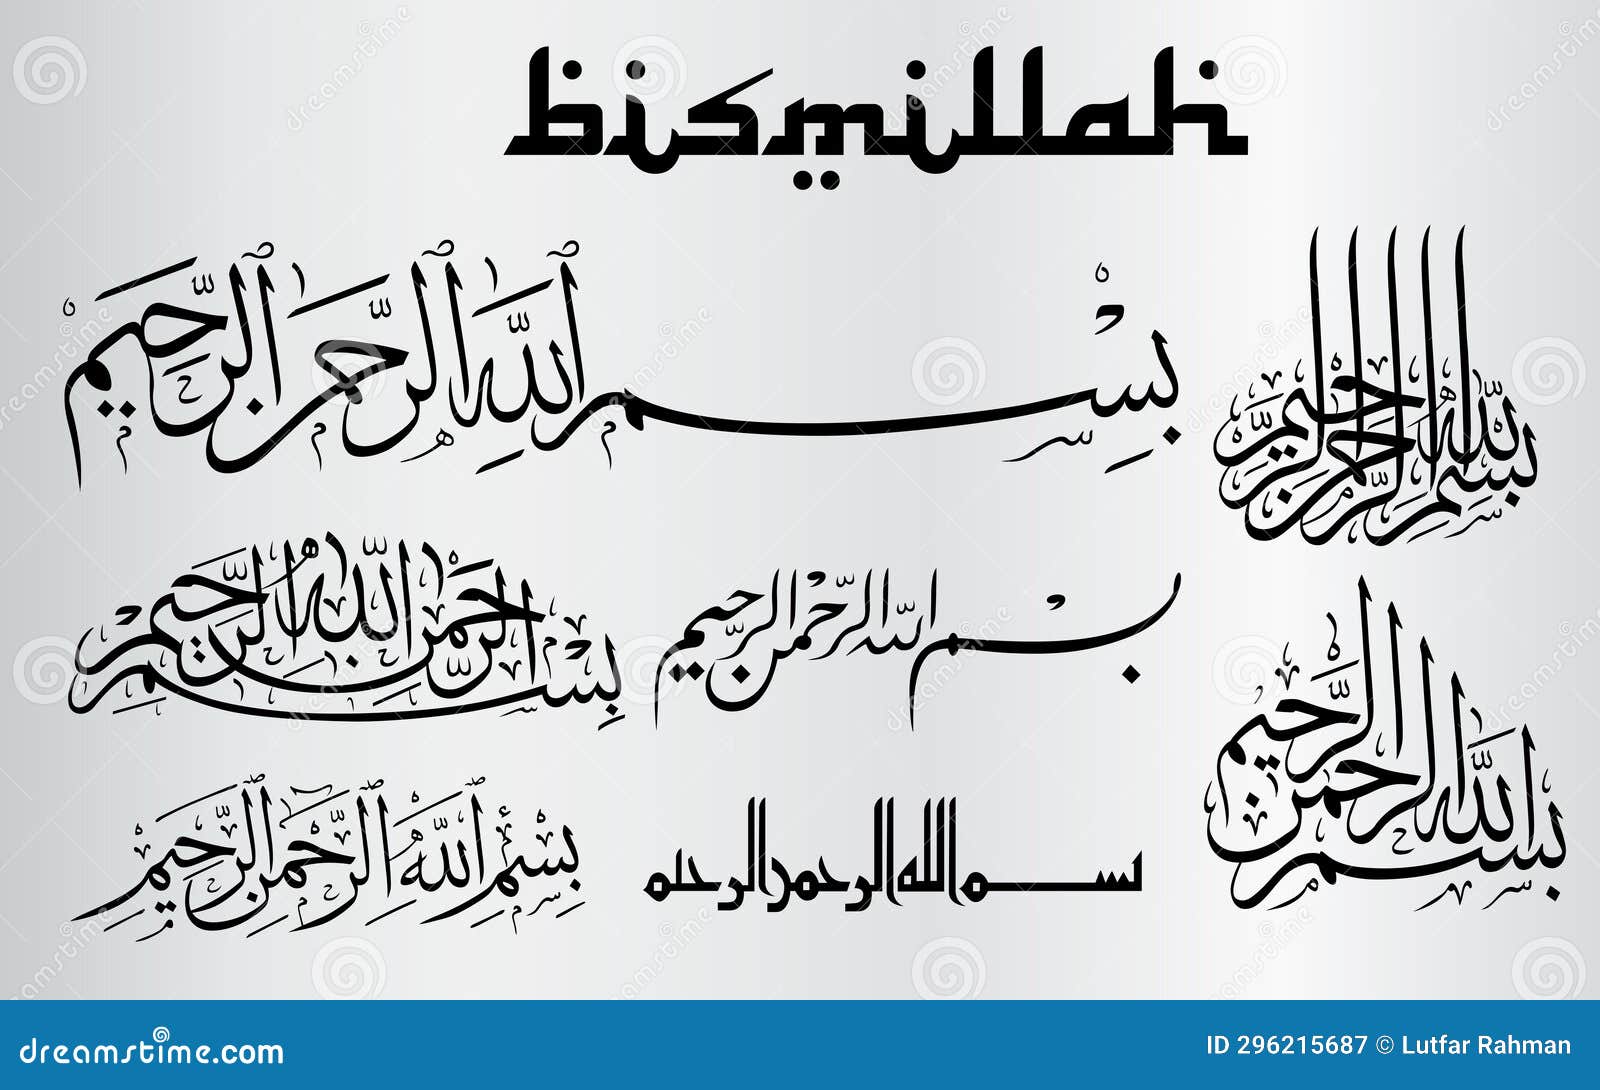 bismillah
بِسْمِ اللَّهِ الرَّحْمَنِ الرَّحِيمِ
بسم الله الرحمن الرحيم
بسم الله الرحمن الرحيم
بسم الله الرحمن الرحيم
بسم الله الرحمن الرحيم
بِسْمِ اللَّهِ الرَّحْمَنِ الرَّحِيمِ
بسم الله الرحمن الرحيم
dreamstime.com
ID 296215687 © Lutfar Rahman